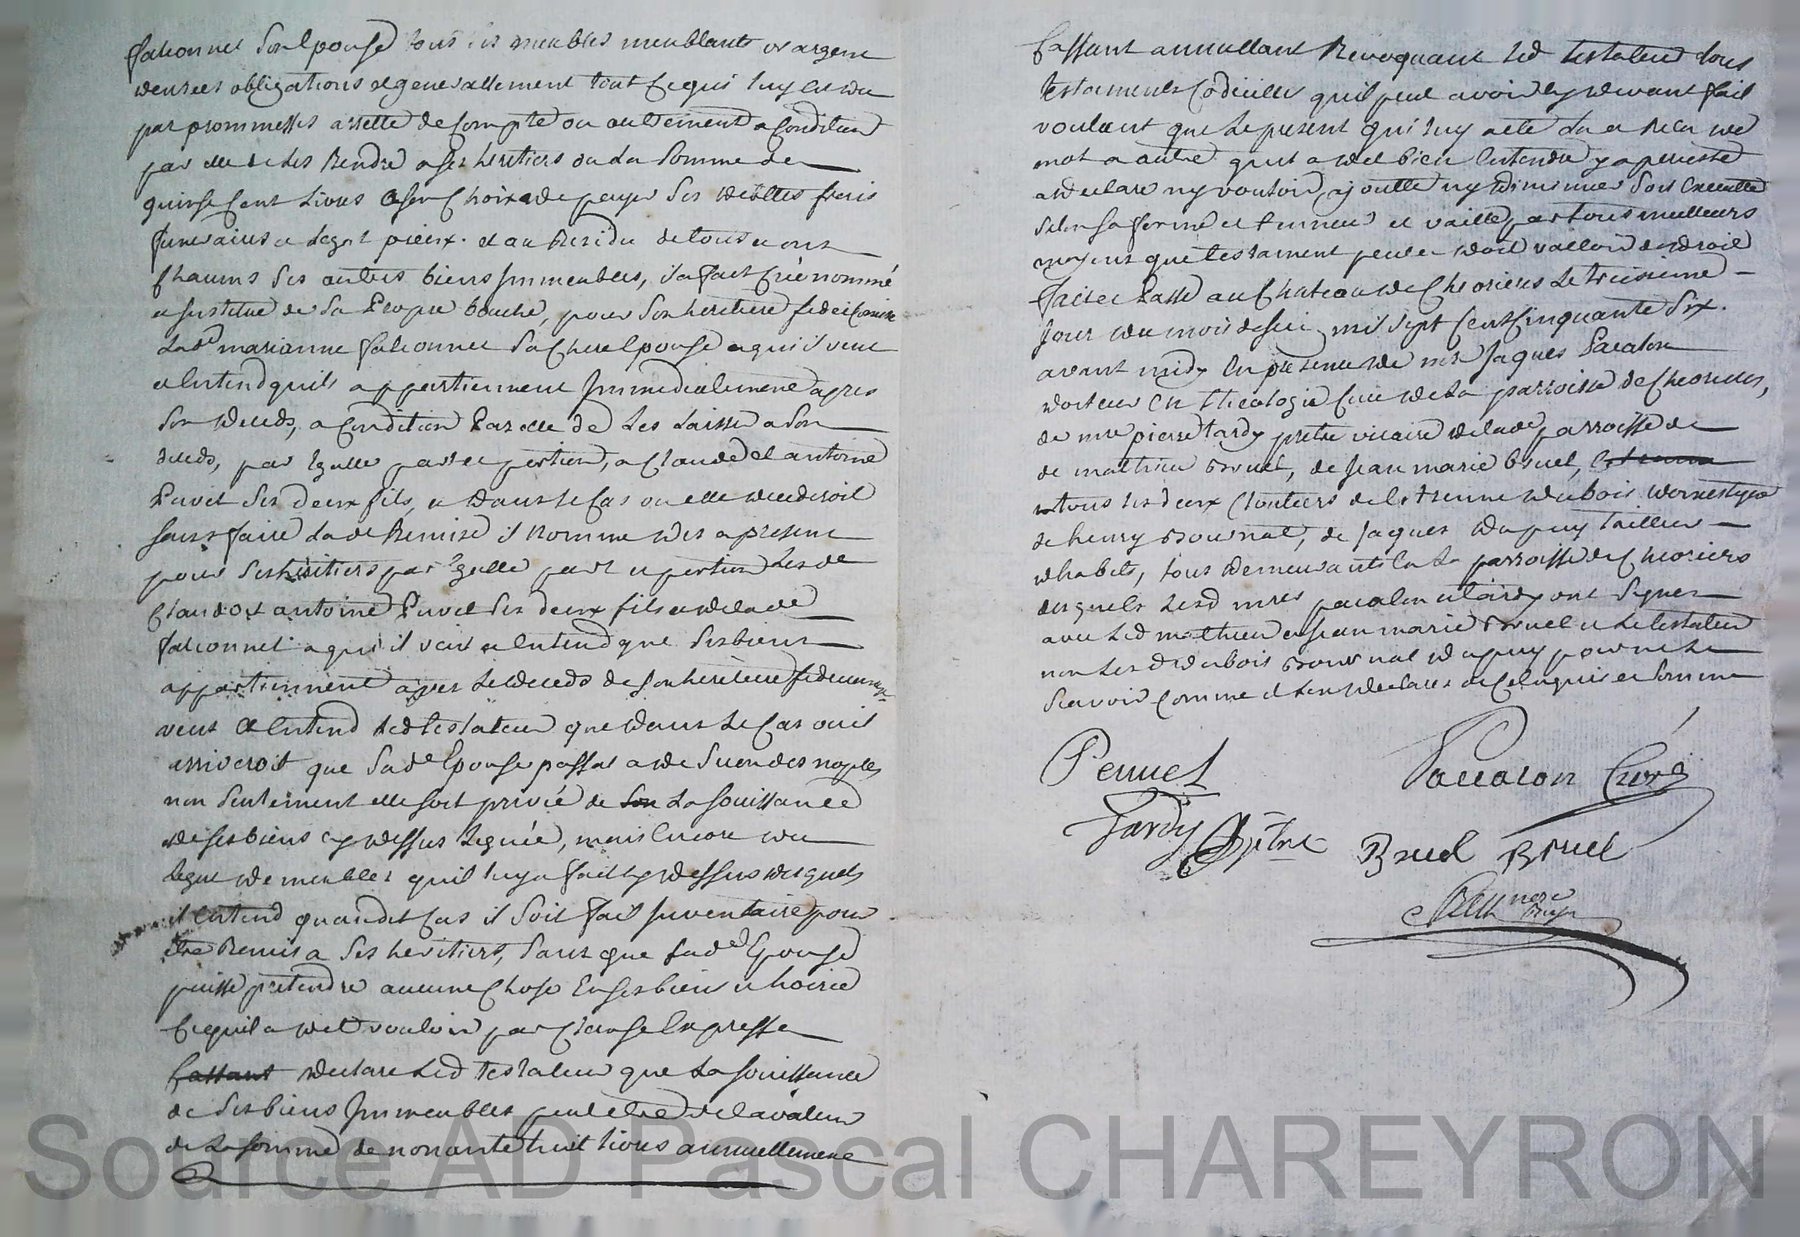 falconnet son Epouse tous ses meubles meublants or argent
denrées obligations et generallement tout ce qui luy est du
par prommesses arrette de Compte ou autrement a Condition
par elle de les Rendre a ses heritiers ou la somme de
quinse Cent livres a son Choix et de payer ses debtes frais
funeraires et legat pieux. et au Residu de tous et uns
chacuns ses autres biens Immeubles, il a fait Créé nommé
et institue de sa Propre bouche, pour son heritiere
lad.e marianne falconnet sa Chere Epouse a qui il veut
et Entend quils appartiennent Immediatement apres
son deceds, a Condition Par elle de les laisser a son
deceds, par Egalle part et portion, a Claude et antoine
ses deux fils, et dans le Cas ou elle decederoit
sans faire lad.e Remise il Nomme des a present
pour ses heritiers par Egalle part et portion lesd.
Claude et antoine ses deux fils et de lad.e
falconnet a qui il veut et Entend que ses biens
appartiennent apres le deceds de son heritiere
veut et Entend led testateur que dans le Cas ou il
arriveroit que sad.e Epouse passat a de secondes nopces
non seulement elle soit privée de son la Jouissance
de ses biens cy dessus leguée, mais Encore du
legat de meubles quil luy a fait cy dessus desquels
il Entend quaudit Cas il soit fait Inventaire pour
être Remis a ses heritiers, sans que sad.e Epouse
puisse pretendre aucune Chose En ses biens et hoirie
Ce quil a dit vouloir par Clause Expresse
Cassant declare led testateur que la Jouissance
de ses biens Immeubles peut etre de la valeur
de la somme de nonante huit livres annuellement
Cassant annullant Revoquant led testateur tous
testaments Codicilles quil peut avoir cy devant fait
voulant que le present qui luy a ete lu et Relu de
mot a autre quil a dit bien Entendre y a persisté
a declare ny vouloir ajoutter ny diminuer sois Executté
selon sa forme et teneur et vaille par tous meilleurs
moyens que testament peut et doit valloir de droit
fait et Passé au Chateau de Cheoriers le troisieme
jour du mois de mil sept Cent Cinquante six.
avant midy En presence de mre Jaques Pacalon
docteur En theologie Curé de la parroisse de Cheoriers,
de mre pierre tardy pretre vicaire de lade parroisse de
de mathieu bruel, de Jean marie bruel,
tous les deux Cloutiers de Etienne dubois domestique
de henry bournat, de Jaques dupuy tailleur
dhabits, tous demeurants En la parroisse de Cheoriers
desquels lesd mres pacalon et tardy ont signes
avec led mathieu et Jean marie bruel et le testateur
non lesd dubois bournat dupuy pour ne le
sçavoir Comme il l'ont declares de Ce Enquis et somme
Peruiel
Paccalon Curé
Tardy Ptre
Bruel Bruel
Source AD Pascal CHAREYRON